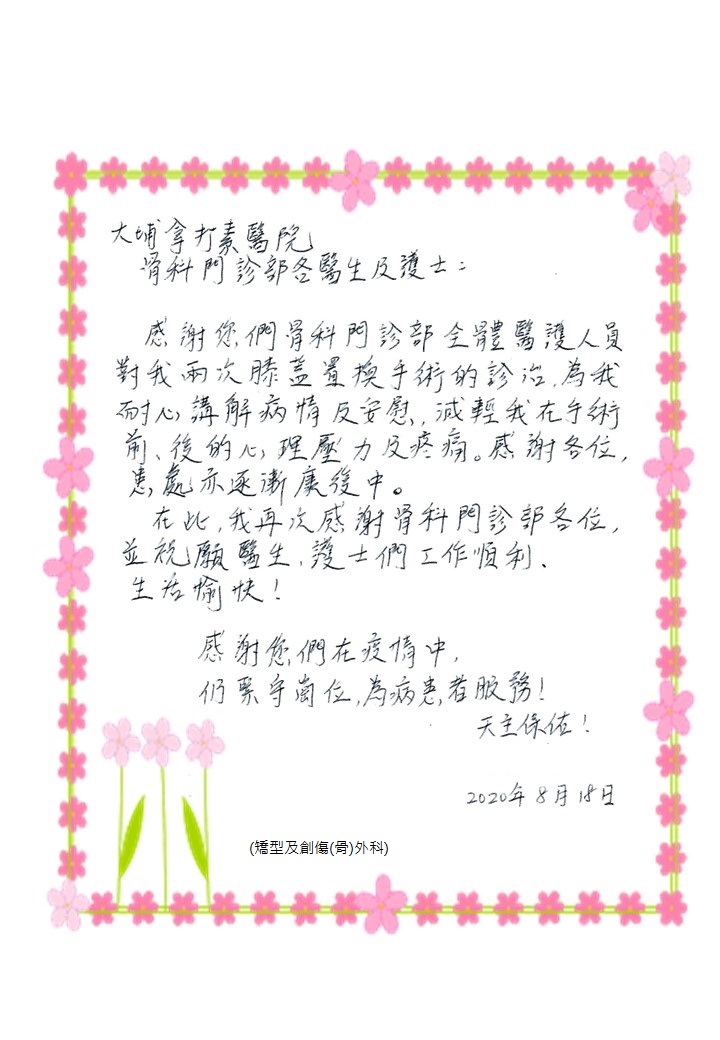 大埔拿打素醫院
骨科門診部各醫生及護士：
感謝您們骨科門診部全體醫護人員
對我兩次膝蓋置換手術的診治,為我
耐心講解病情及安慰,減輕我在手術
前、後的心理壓力及疼痛。感謝各位,
患處亦逐漸康復中。
在此,我再次感謝骨科門診部各位,
並祝願醫生,護士們工作順利、
生活愉快!
感謝您們在疫情中,
仍緊守崗位,為病患者服務!
天主保佑!
2020年8月18日
(矯型及創傷(骨)外科)